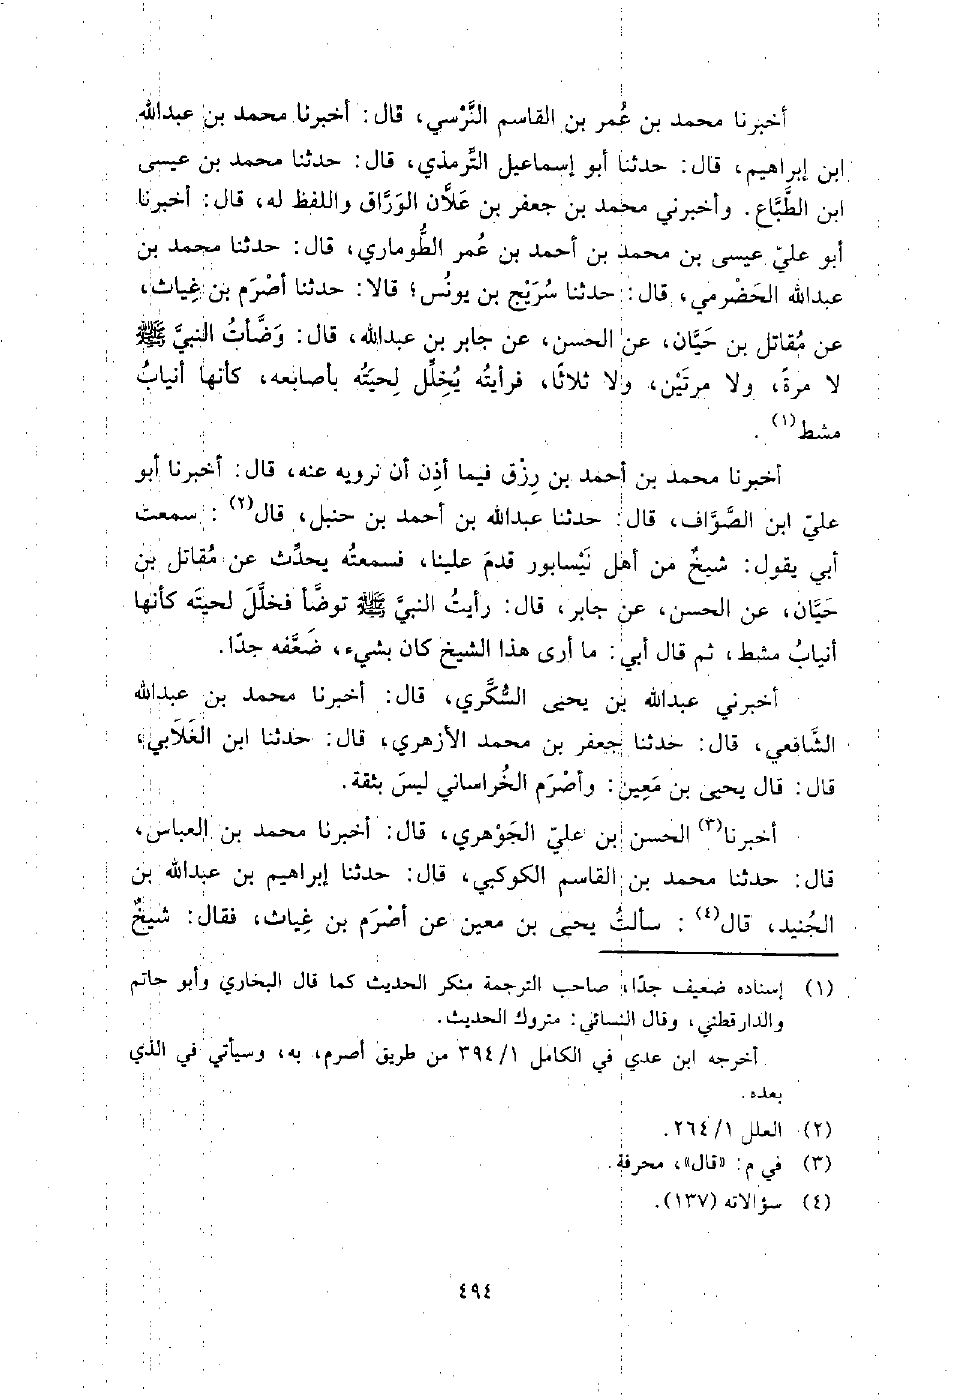 أخبرنا محمد بن عُمر بن القاسم النَّرْسي، قال: أخبرنا محمد بن عبدالله
ابن إبراهيم، قال: حدثنا أبو إسماعيل التِّرمذي، قال: حدثنا محمد بن عيسى
ابن الطَّبَّاع. وأخبرني محمد بن جعفر بن عَلَّان الوَرَّاق واللفظ له، قال: أخبرنا
أبو عليّ عيسى بن محمد بن أحمد بن عُمر الطُّوماري، قال: حدثنا محمد بن
عبدالله الحَضْرمي، قال: حدثنا سُرَيْج بن يونُس؛ قالا: حدثنا أصْرَم بن غِياث،
عن مُقاتل بن حَيَّان، عن الحسن، عن جابر بن عبدالله، قال: وَضَّأتُ النبيَّ ﷺ
لا مرةً، ولا مرتَيْن، ولا ثلاثًا، فرأيتُه يُخلِّل لِحيَتُه بأصابعه، كأنها أنيابُ
مشط(١).
أخبرنا محمد بن أحمد بن رِزْق فيما أذِن أن نرويه عنه، قال: أخبرنا أبو
عليّ ابن الصَّوَّاف، قال: حدثنا عبدالله بن أحمد بن حنبل، قال(٢): سمعت
أبي يقول: شيخٌ من أهل نَيْسابور قدمَ علينا، فسمعتُه يحدِّث عن مُقاتل بن
حَيَّان، عن الحسن، عن جابر، قال: رأيتُ النبيَّ ﷺ توضَّأ فخلَّلَ لحيتَه كأنها
أنيابُ مشط، ثم قال أبي: ما أرى هذا الشيخ كان بشيء، ضَعَّفه جدًا.
أخبرني عبدالله بن يحيى السُّكَّري، قال: أخبرنا محمد بن عبدالله
الشَّافعي، قال: حدثنا جعفر بن محمد الأزهري، قال: حدثنا ابن الغَلَابي،
قال: قال يحيى بن مَعِين: وأصْرَم الخُراساني ليسَ بثقة.
أخبرنا(٣) الحسن بن عليّ الجَوْهري، قال: أخبرنا محمد بن العباس،
قال: حدثنا محمد بن القاسم الكوكبي، قال: حدثنا إبراهيم بن عبدالله بن
الجُنيد، قال(٤): سألتُ يحيى بن معين عن أصْرَم بن غِياث، فقال: شيخٌ
(١) إسناده ضعيف جدًا، صاحب الترجمة منكر الحديث كما قال البخاري وأبو حاتم
والدارقطني، وقال النسائي: متروك الحديث.
أخرجه ابن عدي في الكامل ١/ ٣٩٤ من طريق أصرم، به، وسيأتي في الذي
بعده.
(٢) العلل ١/ ٢٦٤.
(٣) في م: «قال»، محرفة.
(٤) سؤالاته (١٣٧).
٤٩٤